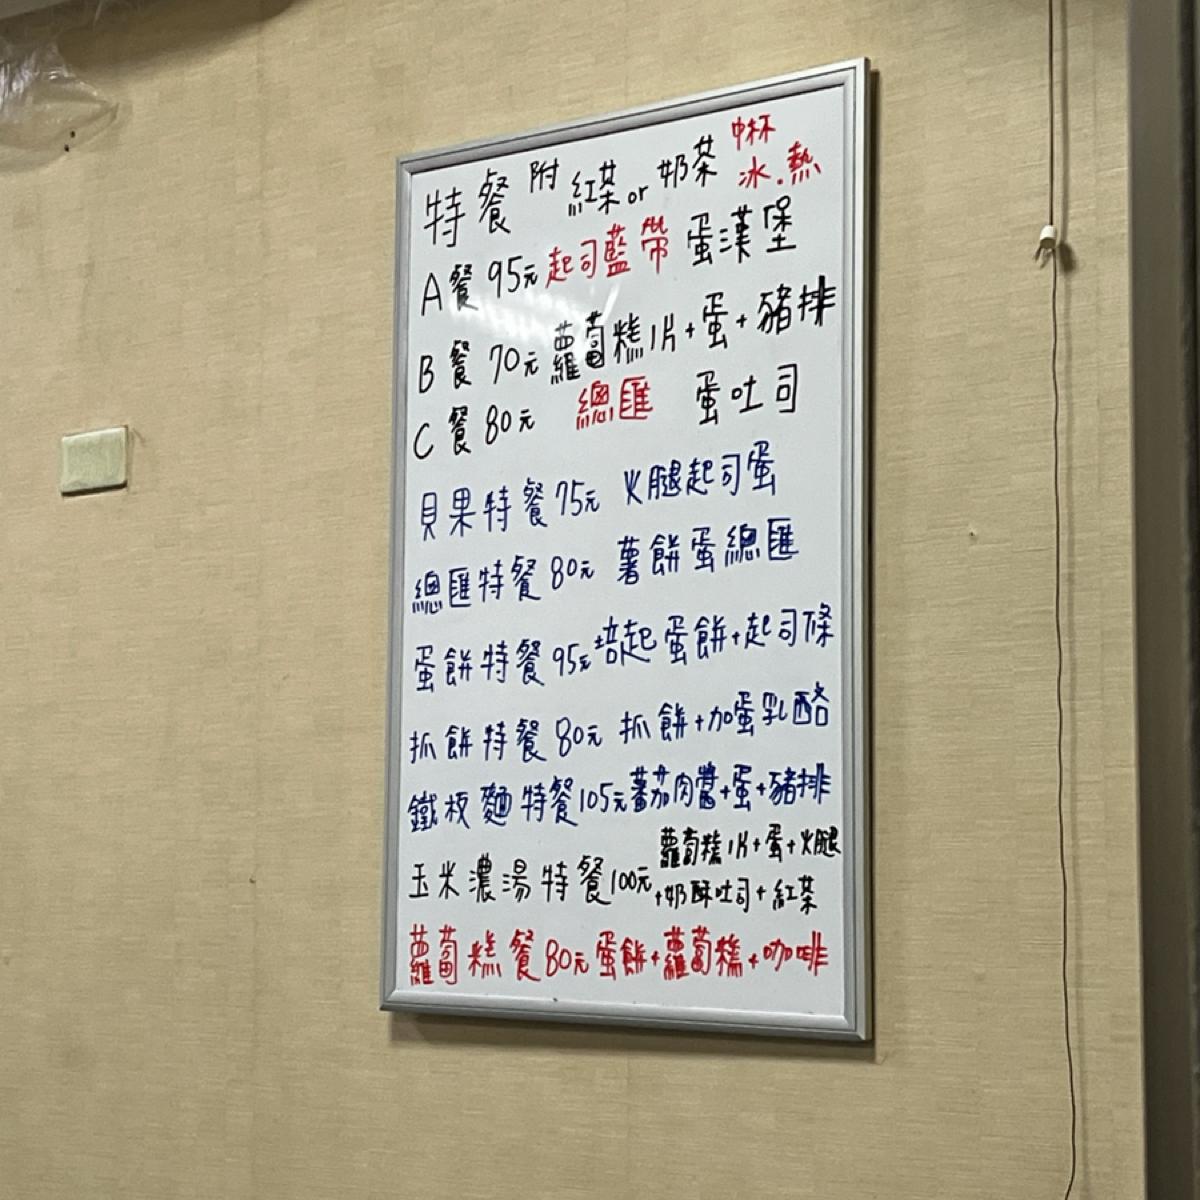 特餐 附 紅茶 or 奶茶 中杯 冰.熱
A餐 95元 起司藍帶 蛋漢堡
B餐 70元 蘿蔔糕1片+蛋+豬排
C餐 80元 總匯 蛋吐司
貝果特餐 75元 火腿起司蛋
總匯特餐 80元 薯餅蛋總匯
蛋餅特餐 95元 培起蛋餅+起司條
抓餅特餐 80元 抓餅+加蛋乳酪
鐵板麵特餐 105元 蕃茄肉醬+蛋+豬排
玉米濃湯特餐 100元 蘿蔔糕1片+蛋+火腿
+奶酥吐司+紅茶
蘿蔔糕餐 80元 蛋餅+蘿蔔糕+咖啡